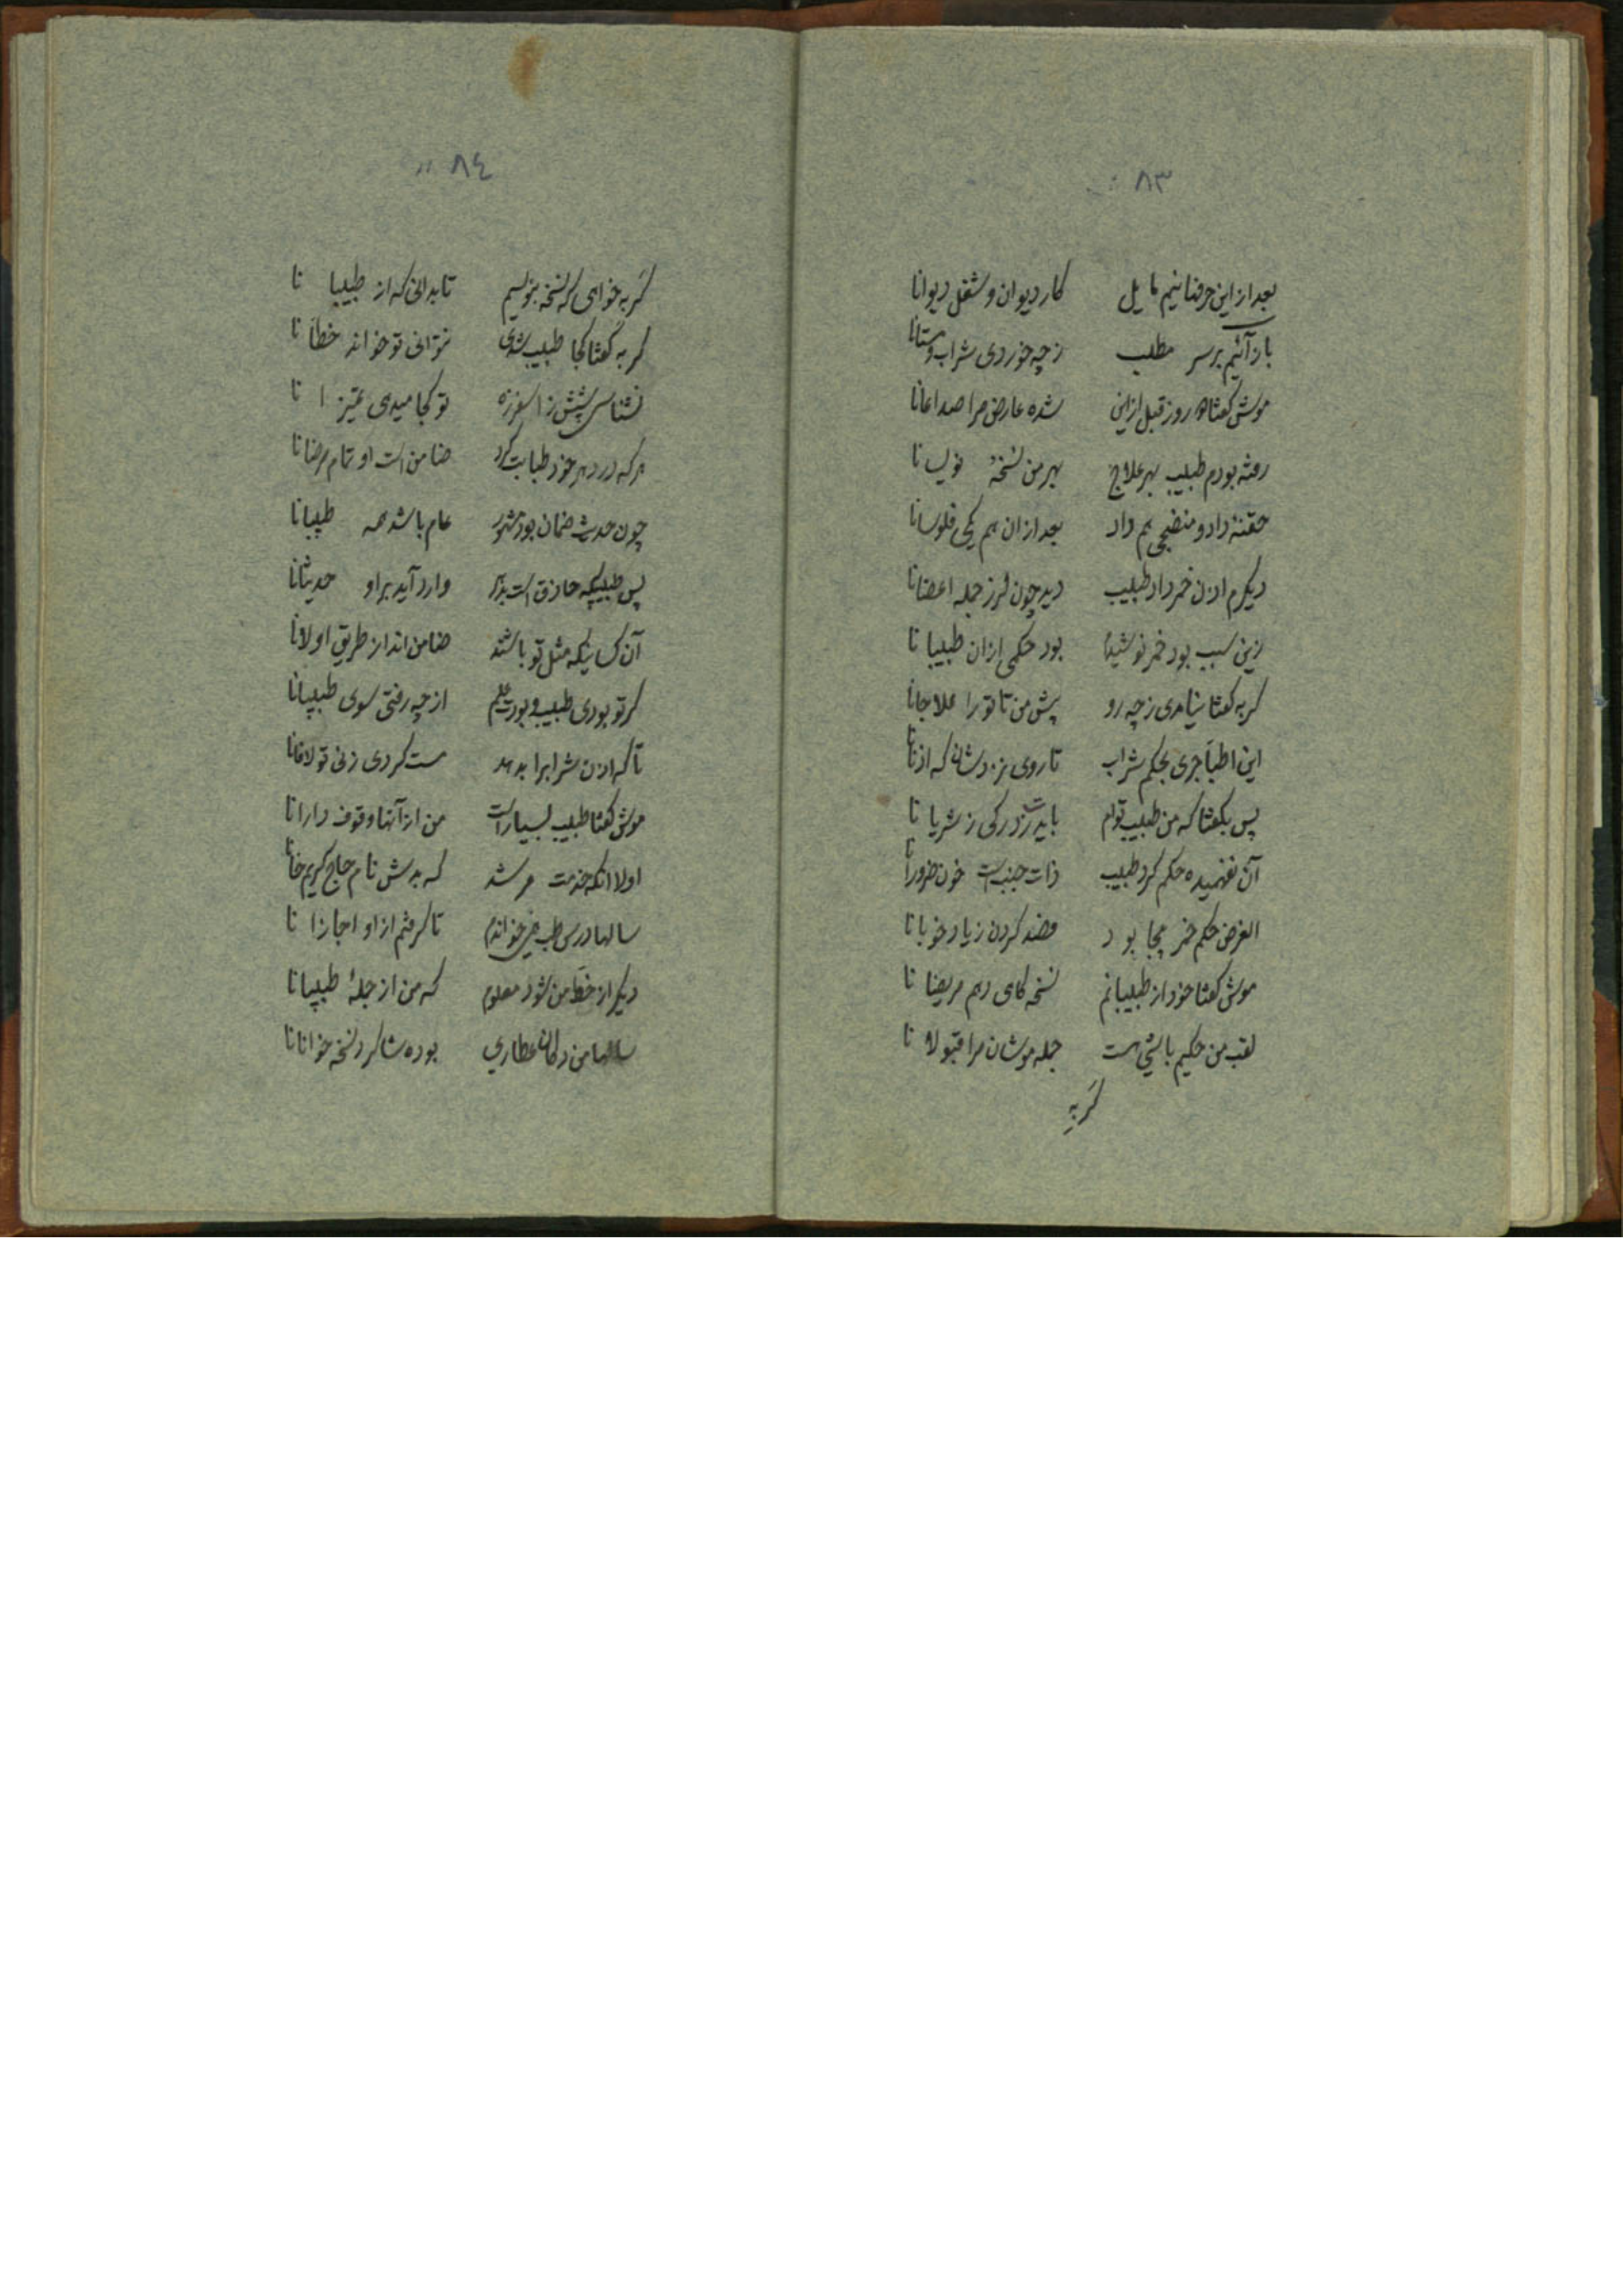 ٨٣
بعد از این حرفنا نیم مایل کار دیوان و شغل دیوانا
باز آئیم بر سر مطلب ز چه خوردی شراب و مستانا
موش گفتا روز قبل از این شده عارض مرا صداعانا
رفته بودم طبیب بهر علاج بهر من نسخهٔ نویسانا
حقنهٔ داد و منضجی هم داد بعد از ان هم یکی فلوسانا
دیگرم اذن خمر داد طبیب دید چون لرز جمله اعضانا
زین سبب بود خمر نوشیدم بود حکمی ازان طبیبانا
گربه گفتا نیامدی ز چه رو پیش من تا تو را علاجانا
این اطبا جری بحکم شراب تا روی نزدشان که اذنانا
پس بگفتا که من طبیب توام باید زدرکی ز شریانا
آن نفهمیده حکم کرد طبیب ذات جنب است خون ضرورانا
الغرض حکم خمر بیجا بود فصد کردن زیاد خوبانا
موش گفتا خود از طبیبانم نسخه کامی دهم مریضانا
لقب من حکیم باشی هست جمله موشان مرا قبولانا
گربه
٨٤
گربه خواهی که نسخه بنویسم تا بدانی که از طبیبانا
گربه گفتا کجا طبیب شدی نتوانی تو خواند خطانا
نشناسی شپش ز اسفرزه تو کجا میدهی تمیزانا
هرکه در دهر خود طبابت کرد ضامن است او تمام مرضانا
چون حدیث ضمان بود مشهور عام باشد همه طبیبانا
پس طبیبیکه حاذق است بدان وارد آید بر او حدیثانا
آن کسانیکه مثل تو باشند ضامن اند از طریق اولانا
گر تو بودی طبیب و بودت علم از چه رفتی سوی طبیبانا
تا که اذن شرابرا بدهد مست کردی زنی تو لافانا
موش گفتا طبیب بسیار است من از آنها وقوف دارانا
اولا انکه خدمت مرشد که بدش نام حاج کریم خانا
سالها درس طب همی خواندم تا گرفتم از او اجازانا
دیگر از خط من شود معلوم که من از جملهٔ طبیبانا
سالها من دکان عطاری بوده شاگرد نسخه خوانانا